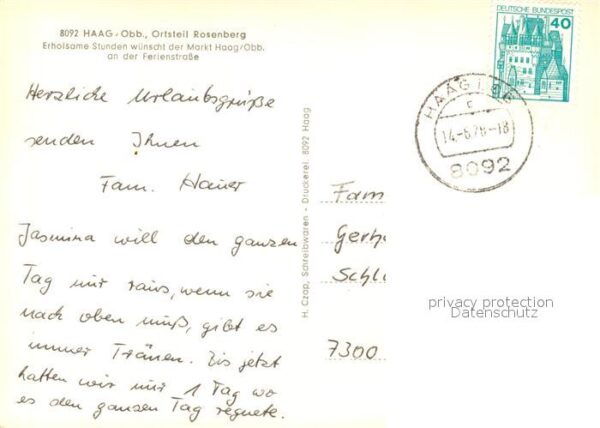 8092 HAAG/Obb., Ortsteil Rosenberg
Erholsame Stunden wünscht der Markt Haag/Obb.
an der Ferienstraße
DEUTSCHE BUNDESPOST
40
HAAG i. OB
c
14.-6.78-18
8092
Herzliche Urlaubsgrüße
senden Ihnen
Fam. Hauer
Jasmina will den ganzen
Tag nur raus, wenn sie
nach oben muß, gibt es
immer Tränen. Bis jetzt
hatten wir nur 1 Tag wo
es den ganzen Tag regnete.
H. Czap, Schreibwaren - Druckerei, 8092 Haag
Fam
Gerh
Schl
7300
privacy protection
Datenschutz